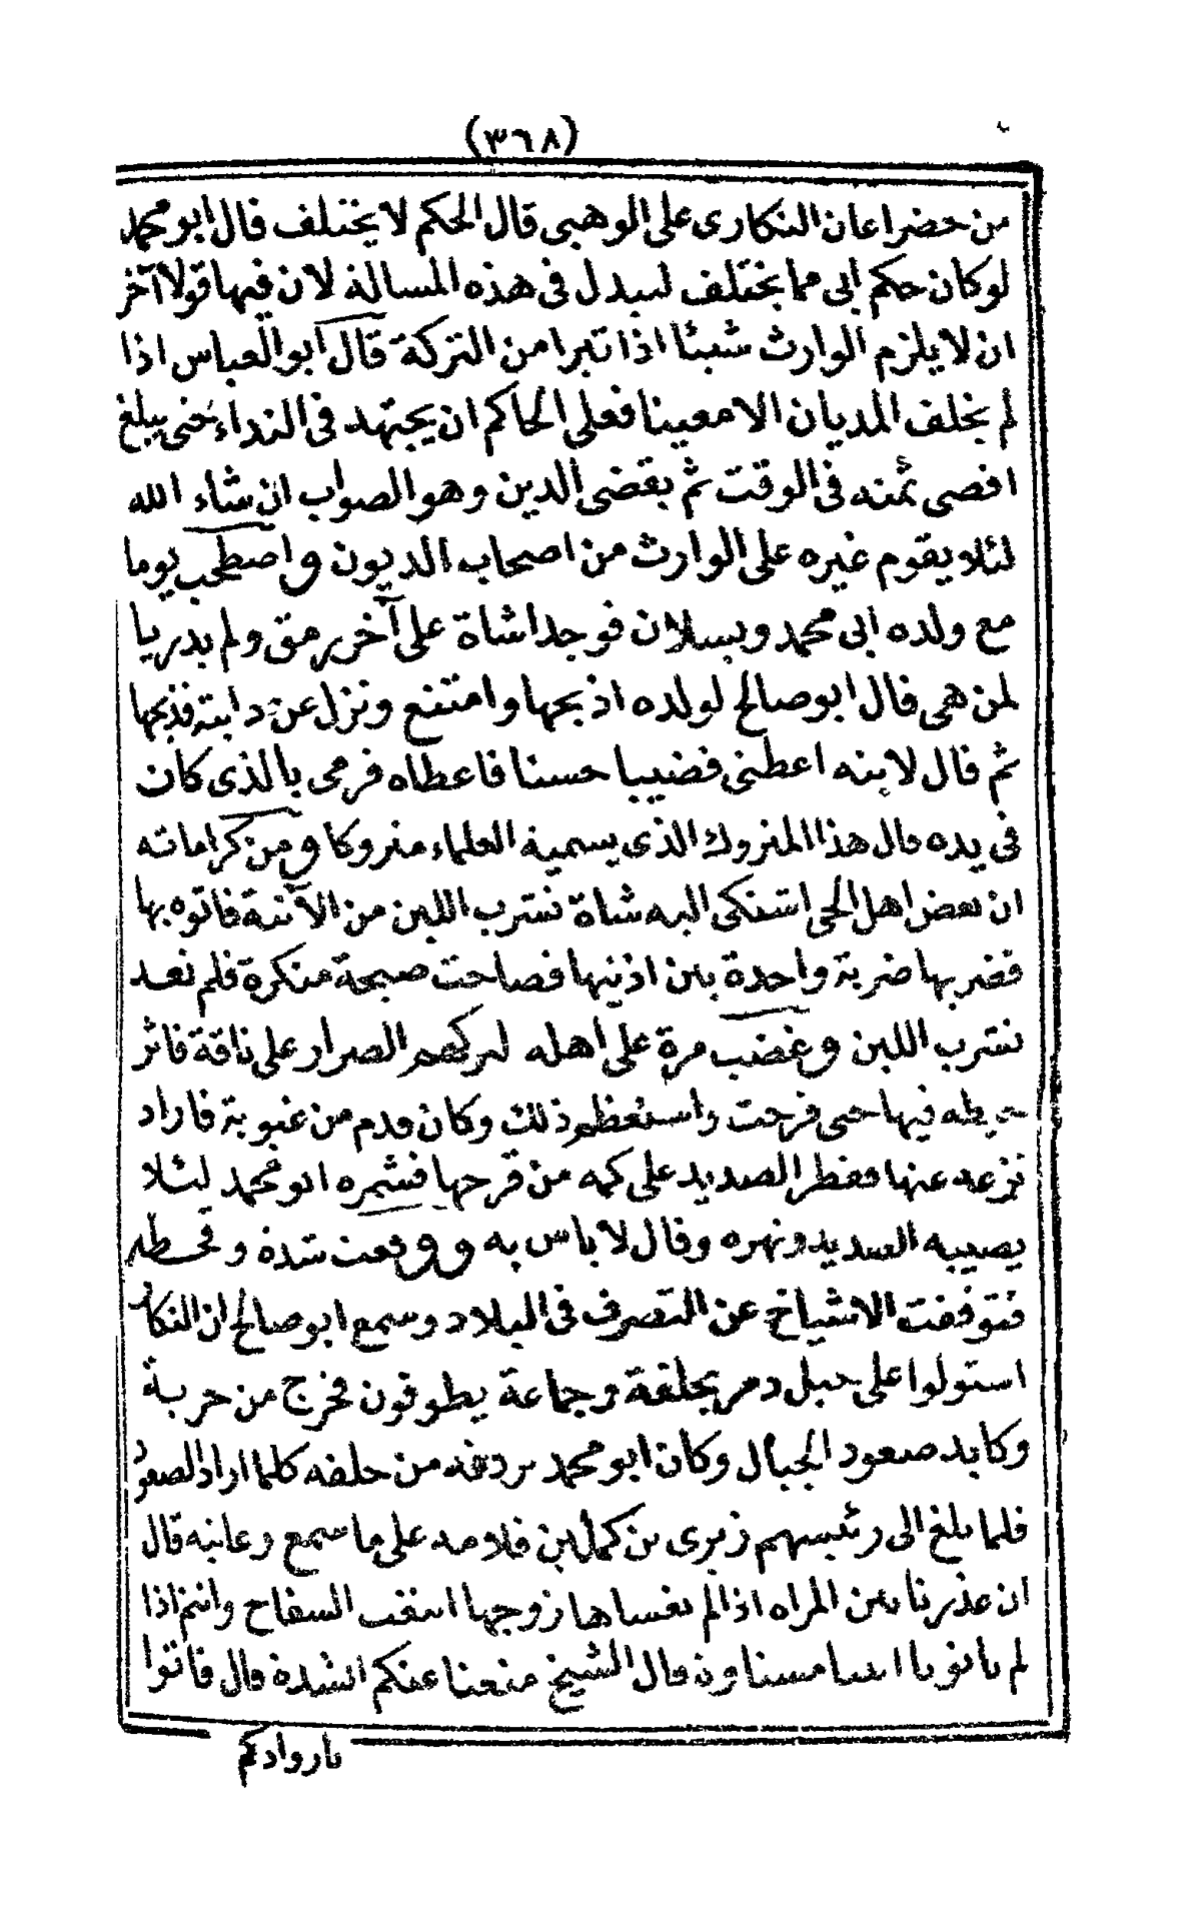 (٣٦٨)
من حضر اعان النكارى على الوهبى قال الحكم لا يختلف قال ابو محمد
لو كان حكم ابى مما يختلف لبدل فى هذه المسالة لان فيها قولا آخر
ان لا يلزم الوارث شيئا اذا تبرا من التركة قال ابو العباس اذا
لم يخلف المديان الا معينا فعلى الحاكم ان يجتهد فى النداء حتى يبلغ
اقصى ثمنه فى الوقت ثم يقضى الدين وهو الصواب ان شاء الله
لئلا يقوم غيره على الوارث من اصحاب الديون واصطحب يوما
مع ولده ابى محمد ويسلان فوجدا شاة على آخر رمق ولم يدريا
لمن هى قال ابو صالح لولده اذبحها وامتنع ونزل عن دابته فذبحها
ثم قال لابنه اعطنى قضيبا حسنا فاعطاه فرمى بالذى كان
فى يده قال هذا المتروك الذى يسميه العلماء متروكا ومن كراماته
ان بعض اهل الحى اشتكى اليه شاة تشرب اللبن من الآنية فاتوه بها
فضربها ضربة واحدة بين اذنيها فصاحت صيحة منكرة فلم تعد
تشرب اللبن وغضب مرة على اهله لتركهم الصرار على ناقة فاثر
خيطه فيها حتى قرحت واستعظم ذلك وكان قدم من غيوبة فاراد
نزعه عنها فقطر الصديد على كمه من قرحها فشمره ابو محمد لئلا
يصيبه الصديد ونهره وقال لا باس به ووقعت شدة وقحطه
فتوقفت الاشياخ عن التصرف فى البلاد وسمع ابو صالح ان النكار
استولوا على جبل دمر بحلقة وجماعة يطوفون فخرج من جربة
وكابد صعود الجبال وكان ابو محمد يردفه من خلفه كلما اراد الصعود
فلما بلغ الى رئيسهم زيرى بن كملين فلامه على ما سمع وعاتبه قال
ان عذرنا بين المراه اذا لم يغساها زوجها ابتغت السفاح وانتم اذا
لم تاتونا اتينا مستاون قال الشيخ منعنا عنكم الشدة قال فاتوا
نارواد كم